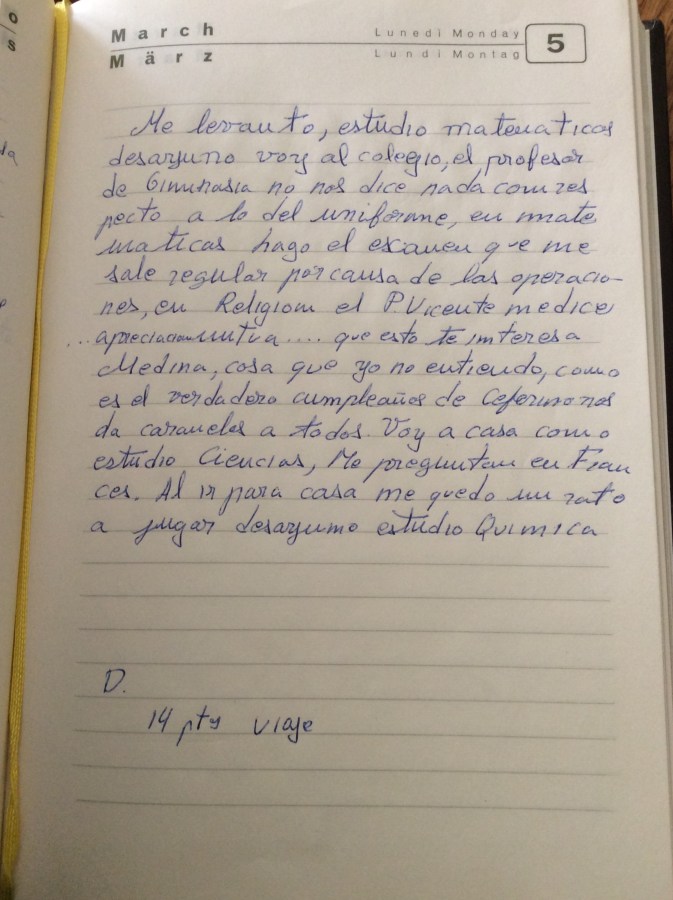 o
s
March
März
Lunedì Monday
Lundi Montag
5
Me levanto, estudio matematicas
desayuno voy al colegio, el profesor
de Gimnasia no nos dice nada con res
pecto a lo del uniforme, en mate
maticas hago el examen que me
sale regular por causa de las operacio-
nes, en Religiom el P. Vicente me dice
... apreciacion mutua .... que esto te interesa
Medina, cosa que yo no entiendo, como
es el verdadero cumpleaños de Ceferino nos
da caramelos a todos. Voy a casa como
estudio Ciencias, Me preguntan en Fran
ces. Al ir para casa me quedo un rato
a jugar desayuno estudio Quimica
D.
14 pts viaje